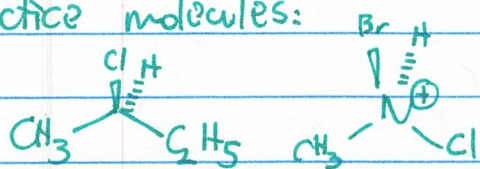 ctice molecules:
Cl H
CH3 C2H5
Br H
N ⊕
CH3 Cl